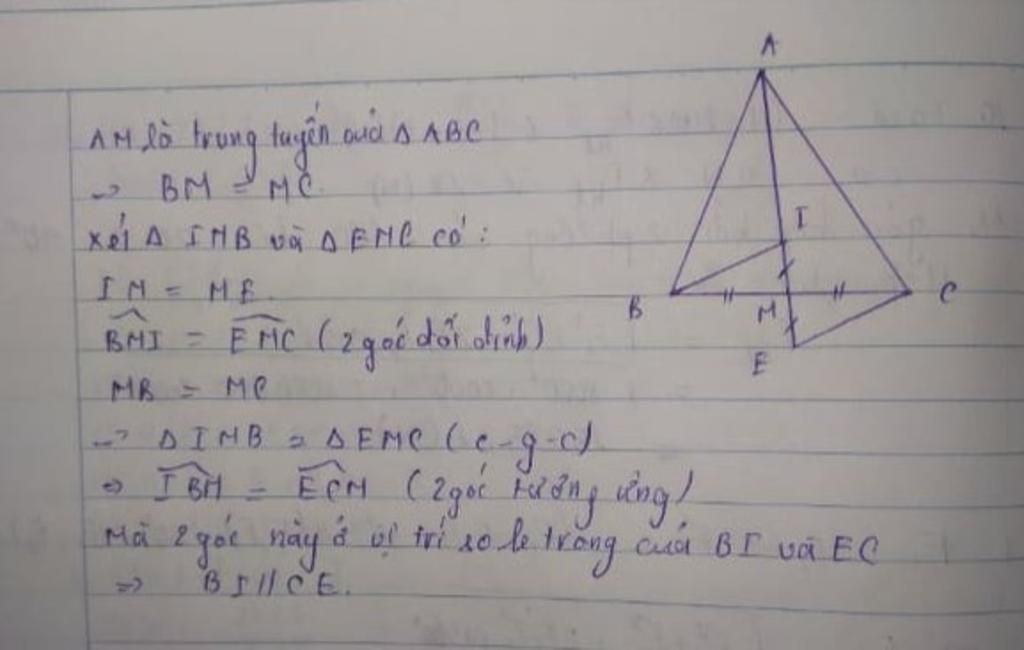 AM là trung tuyến của Δ ABC
→ BM = MC.
Xét Δ IMB và Δ EMC có:
IM = ME.
\widehat{BMI} = \widehat{EMC} (2 góc đối đỉnh)
MB = MC
→ Δ IMB = Δ EMC (c-g-c)
⇒ \widehat{IBM} = \widehat{ECM} (2 góc tương ứng)
Mà 2 góc này ở vị trí so le trong của BI và EC
⇒ BI // CE.
A
I
B
M
C
E